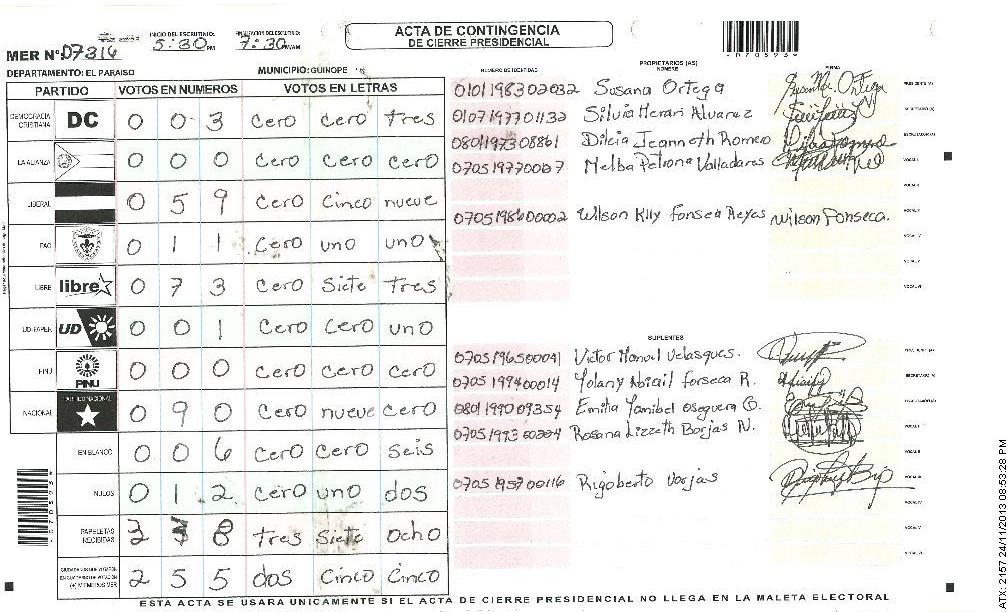 ACTA DE CONTINGENCIA
DE CIERRE PRESIDENCIAL
MER Nº: 07316
INICIO DEL ESCRUTINIO: 5:30 PM
7:30 PM/AM
DEPARTAMENTO: EL PARAISO
MUNICIPIO: GUINOPE
PARTIDO VOTOS EN NUMEROS VOTOS EN LETRAS
DEMOCRACIA CRISTIANA DC 0 0 3 cero cero tres
LA ALIANZA 0 0 0 cero cero cero
LIBERAL 0 5 9 cero cinco nueve
PAC 0 1 1 cero uno uno
LIBRE libre 0 7 3 cero siete tres
UD-FAPER UD 0 0 1 cero cero uno
PINU PINU 0 0 0 cero cero cero
NACIONAL PARTIDO NACIONAL 0 9 0 cero nueve cero
EN BLANCO 0 0 6 cero cero seis
NULOS 0 1 2 cero uno dos
PAPELETAS RECIBIDAS 3 7 8 tres siete ocho
2 5 5 dos cinco cinco
NUMERO DE IDENTIDAD PROPIETARIOS (AS) NOMBRE FIRMA
0101198302032 Susana Ortega
0107197701132 Silvia Merari Alvarez
0801197308861 Dilcia Jeanneth Romeo
Melba Petrona Valladares
Wilson Klly Fonseca Reyes Wilson Fonseca.
SUPLENTES
0705196500041 Victor Manuel Velasques.
0705199400014 Yolany Abigail Fonseca R.
0801199009354 Emilia Yamibel Oseguera O.
Rosana Lizzeth Borjas N.
0705195700116 Rigoberto Vorjas
ESTA ACTA SE USARA UNICAMENTE SI EL ACTA DE CIERRE PRESIDENCIAL NO LLEGA EN LA MALETA ELECTORAL
ATX 2157 24/11/2013 08:53:28 PM